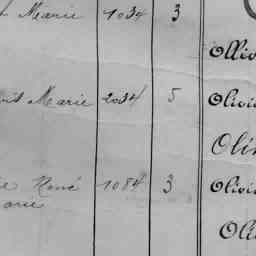 Marie 1034 3
Olli
Marie 2034 5 Olivi
Oli
René 1084 3 Olivi
Marie
Oli